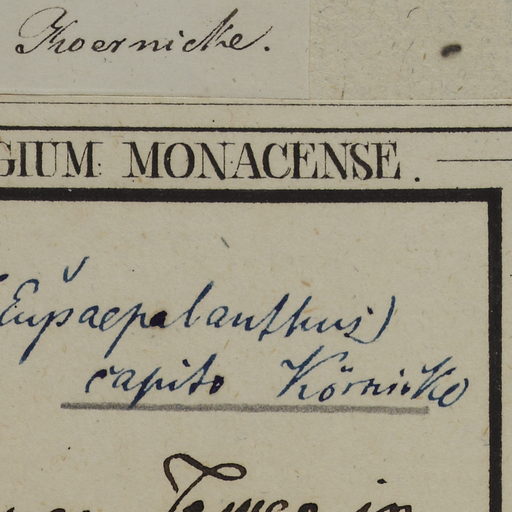 Koernicke.
GIUM MONACENSE.
(Eupaepalanthus)
capito Körnicke
in